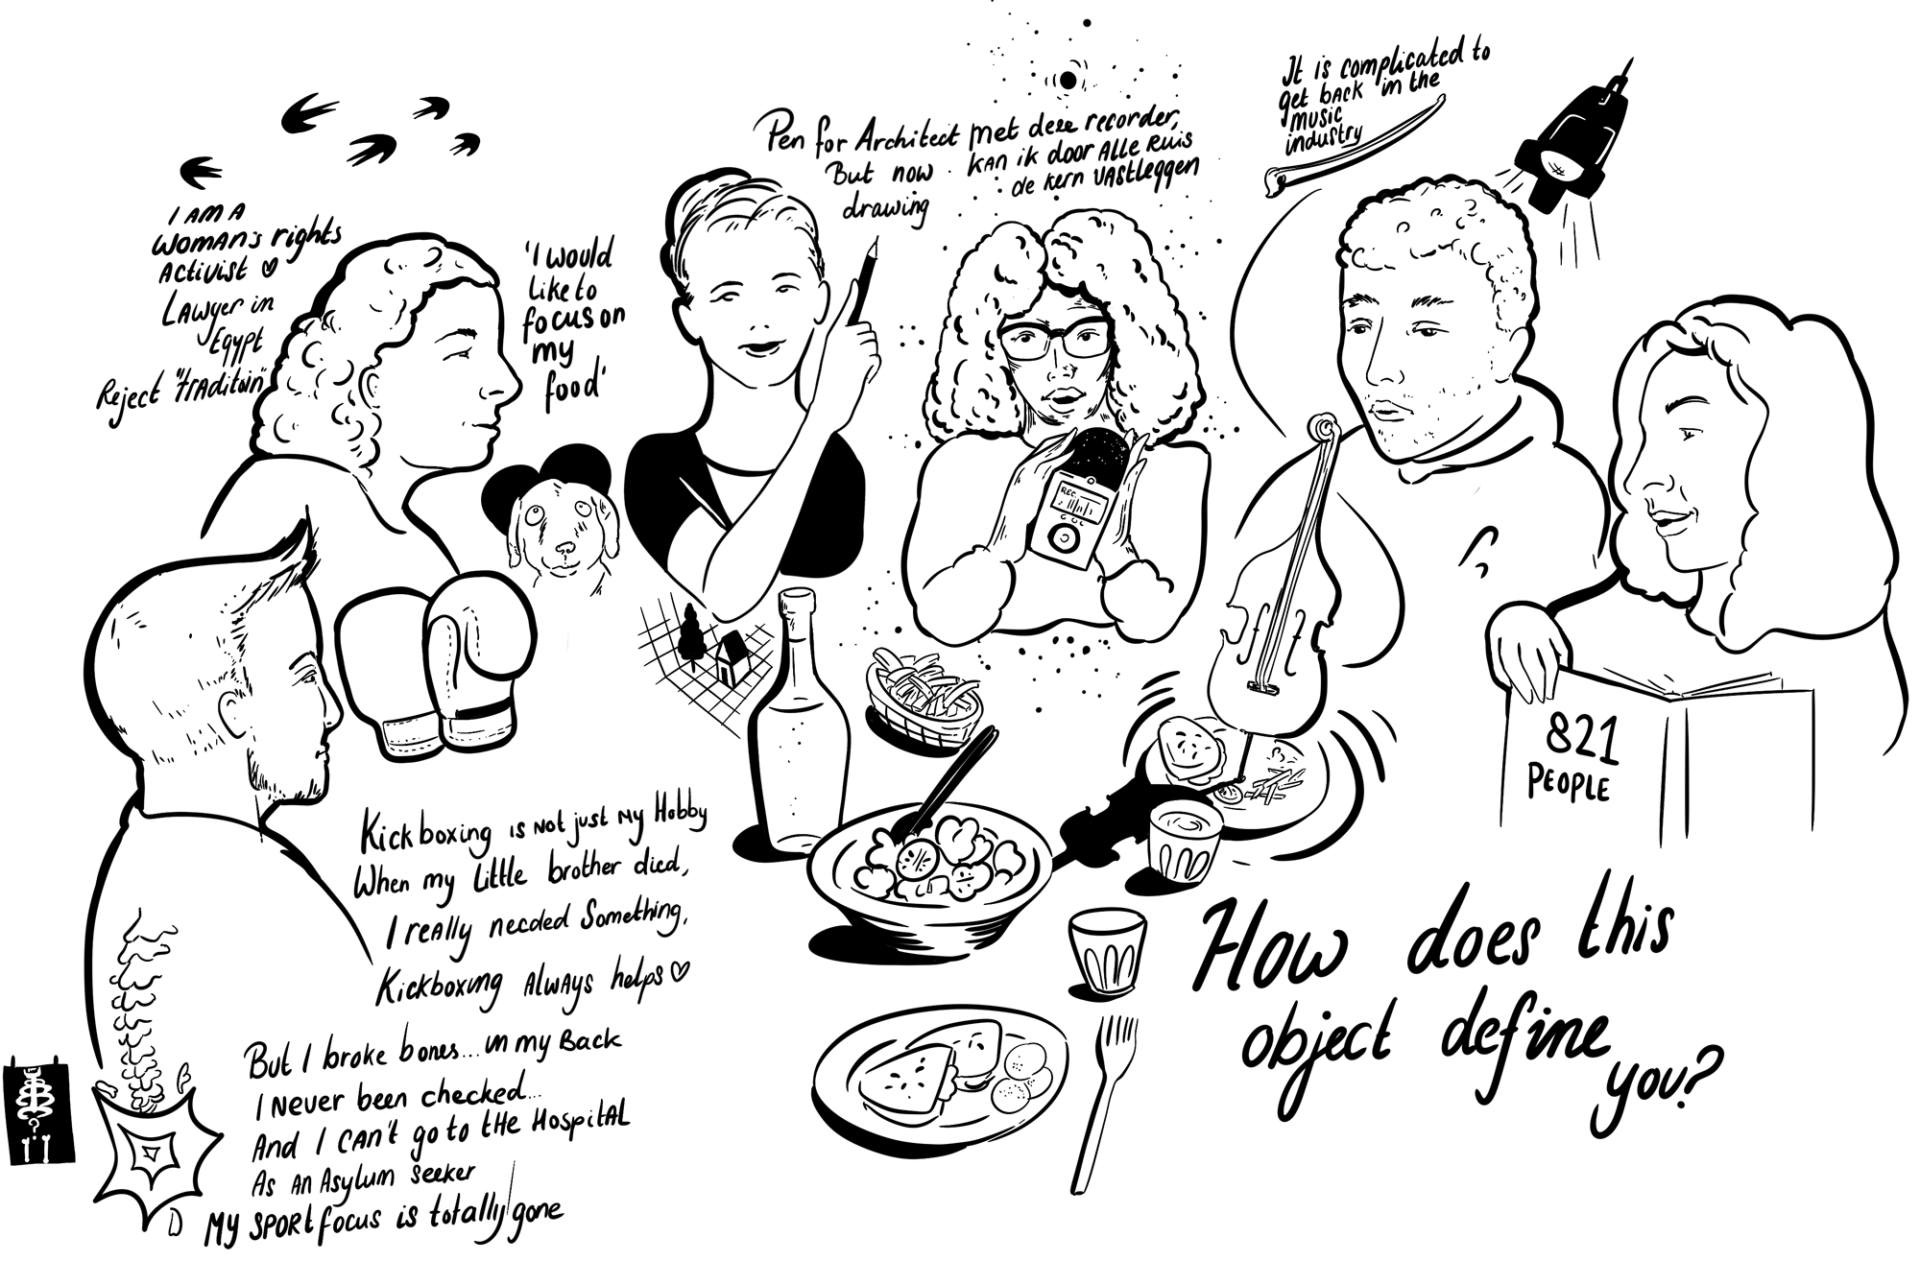 I AM A
WOMAN's rights
Activist
LAwyer in
Egypt
Reject "trAditoin"
'I would
like to
focus on
my
food'
Pen for Architect
But now
drawing
Met deze recorder,
kan ik door Alle Ruis
de kern vastleggen
It is complicated to
get back in the
music
industry
REC.
821
PEOPLE
Kickboxing is not just my Hobby
When my little brother died,
I really needed Something,
Kickboxing Always helps
But I broke bones... in my Back
I Never been checked...
And I CAn't go to the Hospital
As an Asylum seeker
My sport focus is totally gone
?
How does this
object define
you?